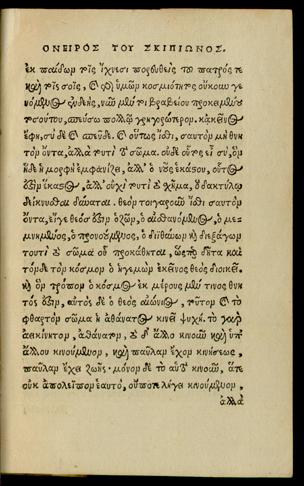 ΟΝΕΙΡΟΣ ΤΟΥ ΣΚΙΠΙΩΝΟΣ.
ἐκ παίδων τοῖς ἴχνεσι τοῦ πατρός τε
καὶ τοῖς σοῖς, καὶ ὑμῶν κοσμιότητος οὔκουν γε
νόμενος ἐνδεής, νῦν μοι βραβείου προκειμένου
τοσούτου, σπεύσω πολλῷ γρηγορώτερον. κἀκεῖνος
ἔφη, σὺ δὲ καὶ σπεῦδε. καὶ οὕτως ἴσθι, σαυτὸν μὴ θνη
τὸν ὄντα, ἀλλὰ τουτὶ τὸ σῶμα. οὐδὲ οὗτος εἶ σύ, ὃν
ἥδε ἡ μορφὴ ἐμφανίζει, ἀλλ' ὁ νοῦς ἑκάστου, οὗτός
ἐστιν ἕκαστος, ἀλλ' οὐχὶ τουτὶ τὸ σχῆμα, ὃ δακτύλῳ
δείκνυσθαι δύναται. θεὸν τοιγαροῦν ἴσθι σαυτὸν
ὄντα, εἴγε θεός ἐστιν ὁ ζῶν, ὁ αἰσθανόμενος, ὁ με
μνημένος, ὁ προνοούμενος, ὁ διϊθύνων καὶ διεξάγων
τουτὶ τὸ σῶμα οὗ προκάθηται, ὥσπερ δῆτα καὶ
τόνδε τὸν κόσμον ὁ ἡγεμὼν ἐκεῖνος θεὸς διοικεῖ.
καὶ ὃν τρόπον ὁ κόσμος ἐκ μέρους μέν τινος θνη
τός ἐστιν, αὐτὸς δὲ ὁ θεὸς αἰώνιος, τοῦτον καὶ τὸ
φθαρτὸν σῶμα ἡ ἀθάνατος κινεῖ ψυχή. τὸ γὰρ
ἀεικίνητον, ἀθάνατον, τὸ δ' ἄλλο κινοῦν καὶ ὑπ'
ἄλλου κινούμενον, καὶ παῦλαν ἔχον κινήσεως,
παῦλαν ἔχει ζωῆς· μόνον δὲ τὸ αὑτὸ κινοῦν, ἅτε
οὐκ ἀπολεῖπον ἑαυτό, οὔποτε λήγει κινούμενον,
ἀλλὰ